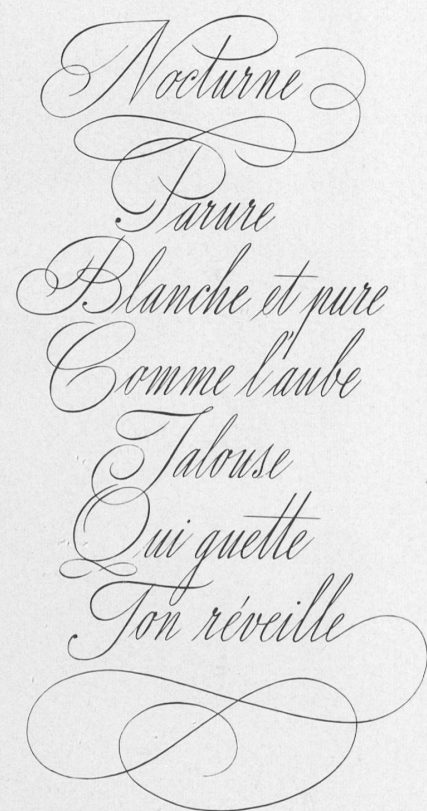 Nocturne
Parure
Blanche et pure
Comme l'aube
Jalouse
Qui guette
Ton réveille